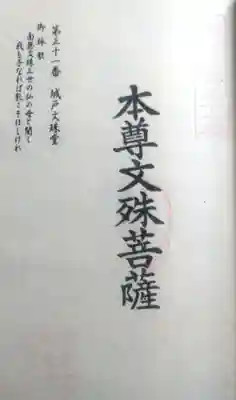 本尊文殊菩薩
第三十一番 城戸文珠堂
御詠歌
南無文珠三世の仏の母と聞く
我も子なれば乳こそほしけれ